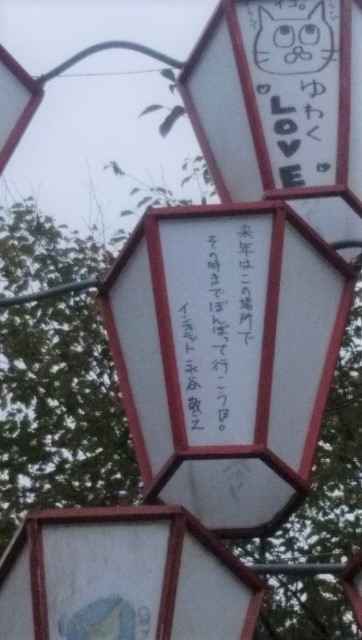 ネコ。
ゆわく
LOVE
来年はこの場所で
その時までぼんぼって行こう日。
インキラット 永谷 敬之